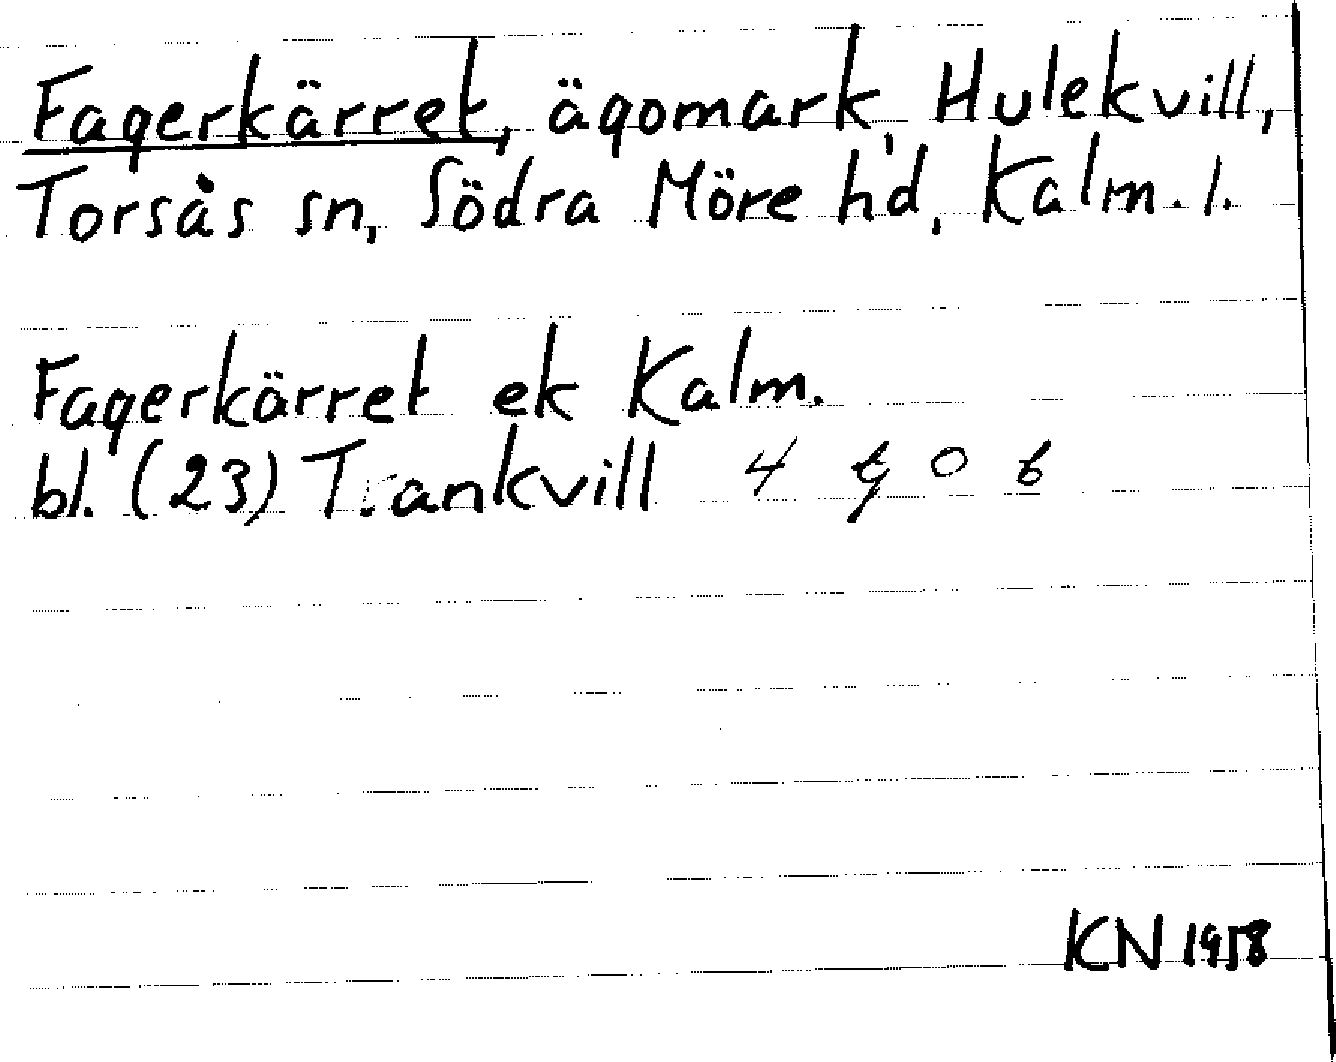 Fagerkärret, ägomark, Hulekvill,
Torsås sn, Södra Möre hd, Kalm. l.
Fagerkärret ek Kalm.
bl. (23) Trankvill 4 g 0 b
KN 1958